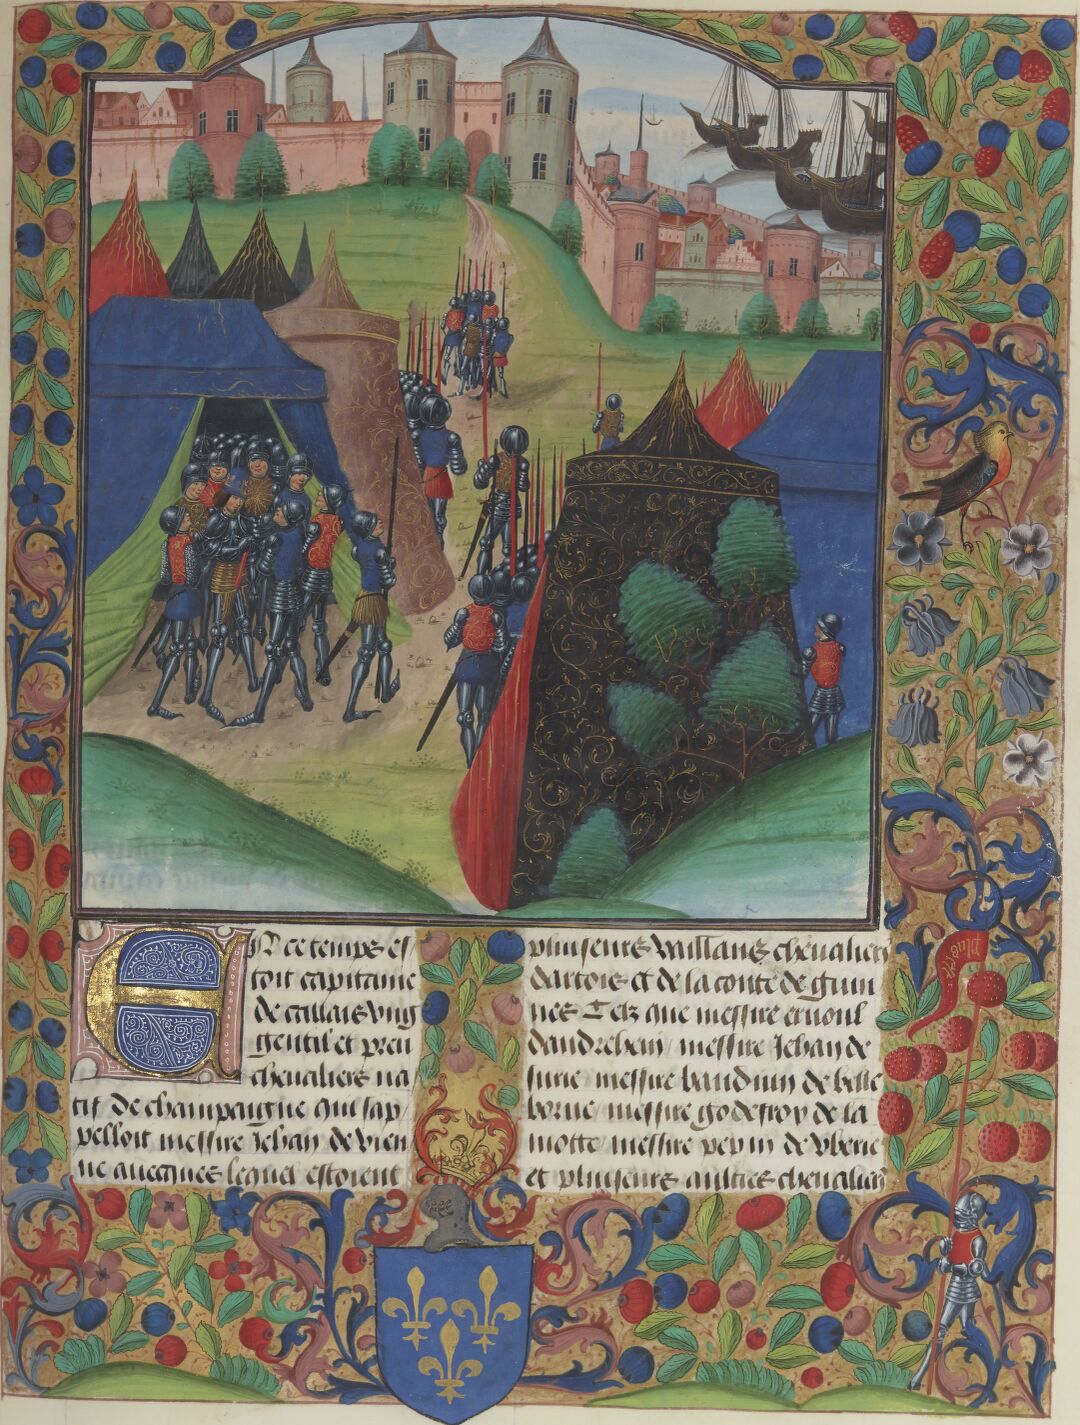 En ce temps es
toit capitaine
de callais ung
gentil et preu
chevaliers na
tif de champaigne qui sap
pelloit messire Jehan de vien
ne avecques lequel estoient
pluiseurs vaillans chevaliers
dartois et de la conte de guin
nes Telz que messire ernoul
dandrehein messire Jehan de
surie messire bauduin de belle
borne messire godeffroy de la
motte messire pepin de Were
et pluiseurs aultres chevaliers